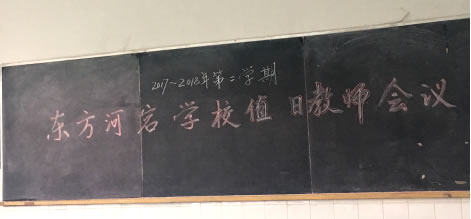 2017~2018年第二学期
东方河宕学校值日教师会议